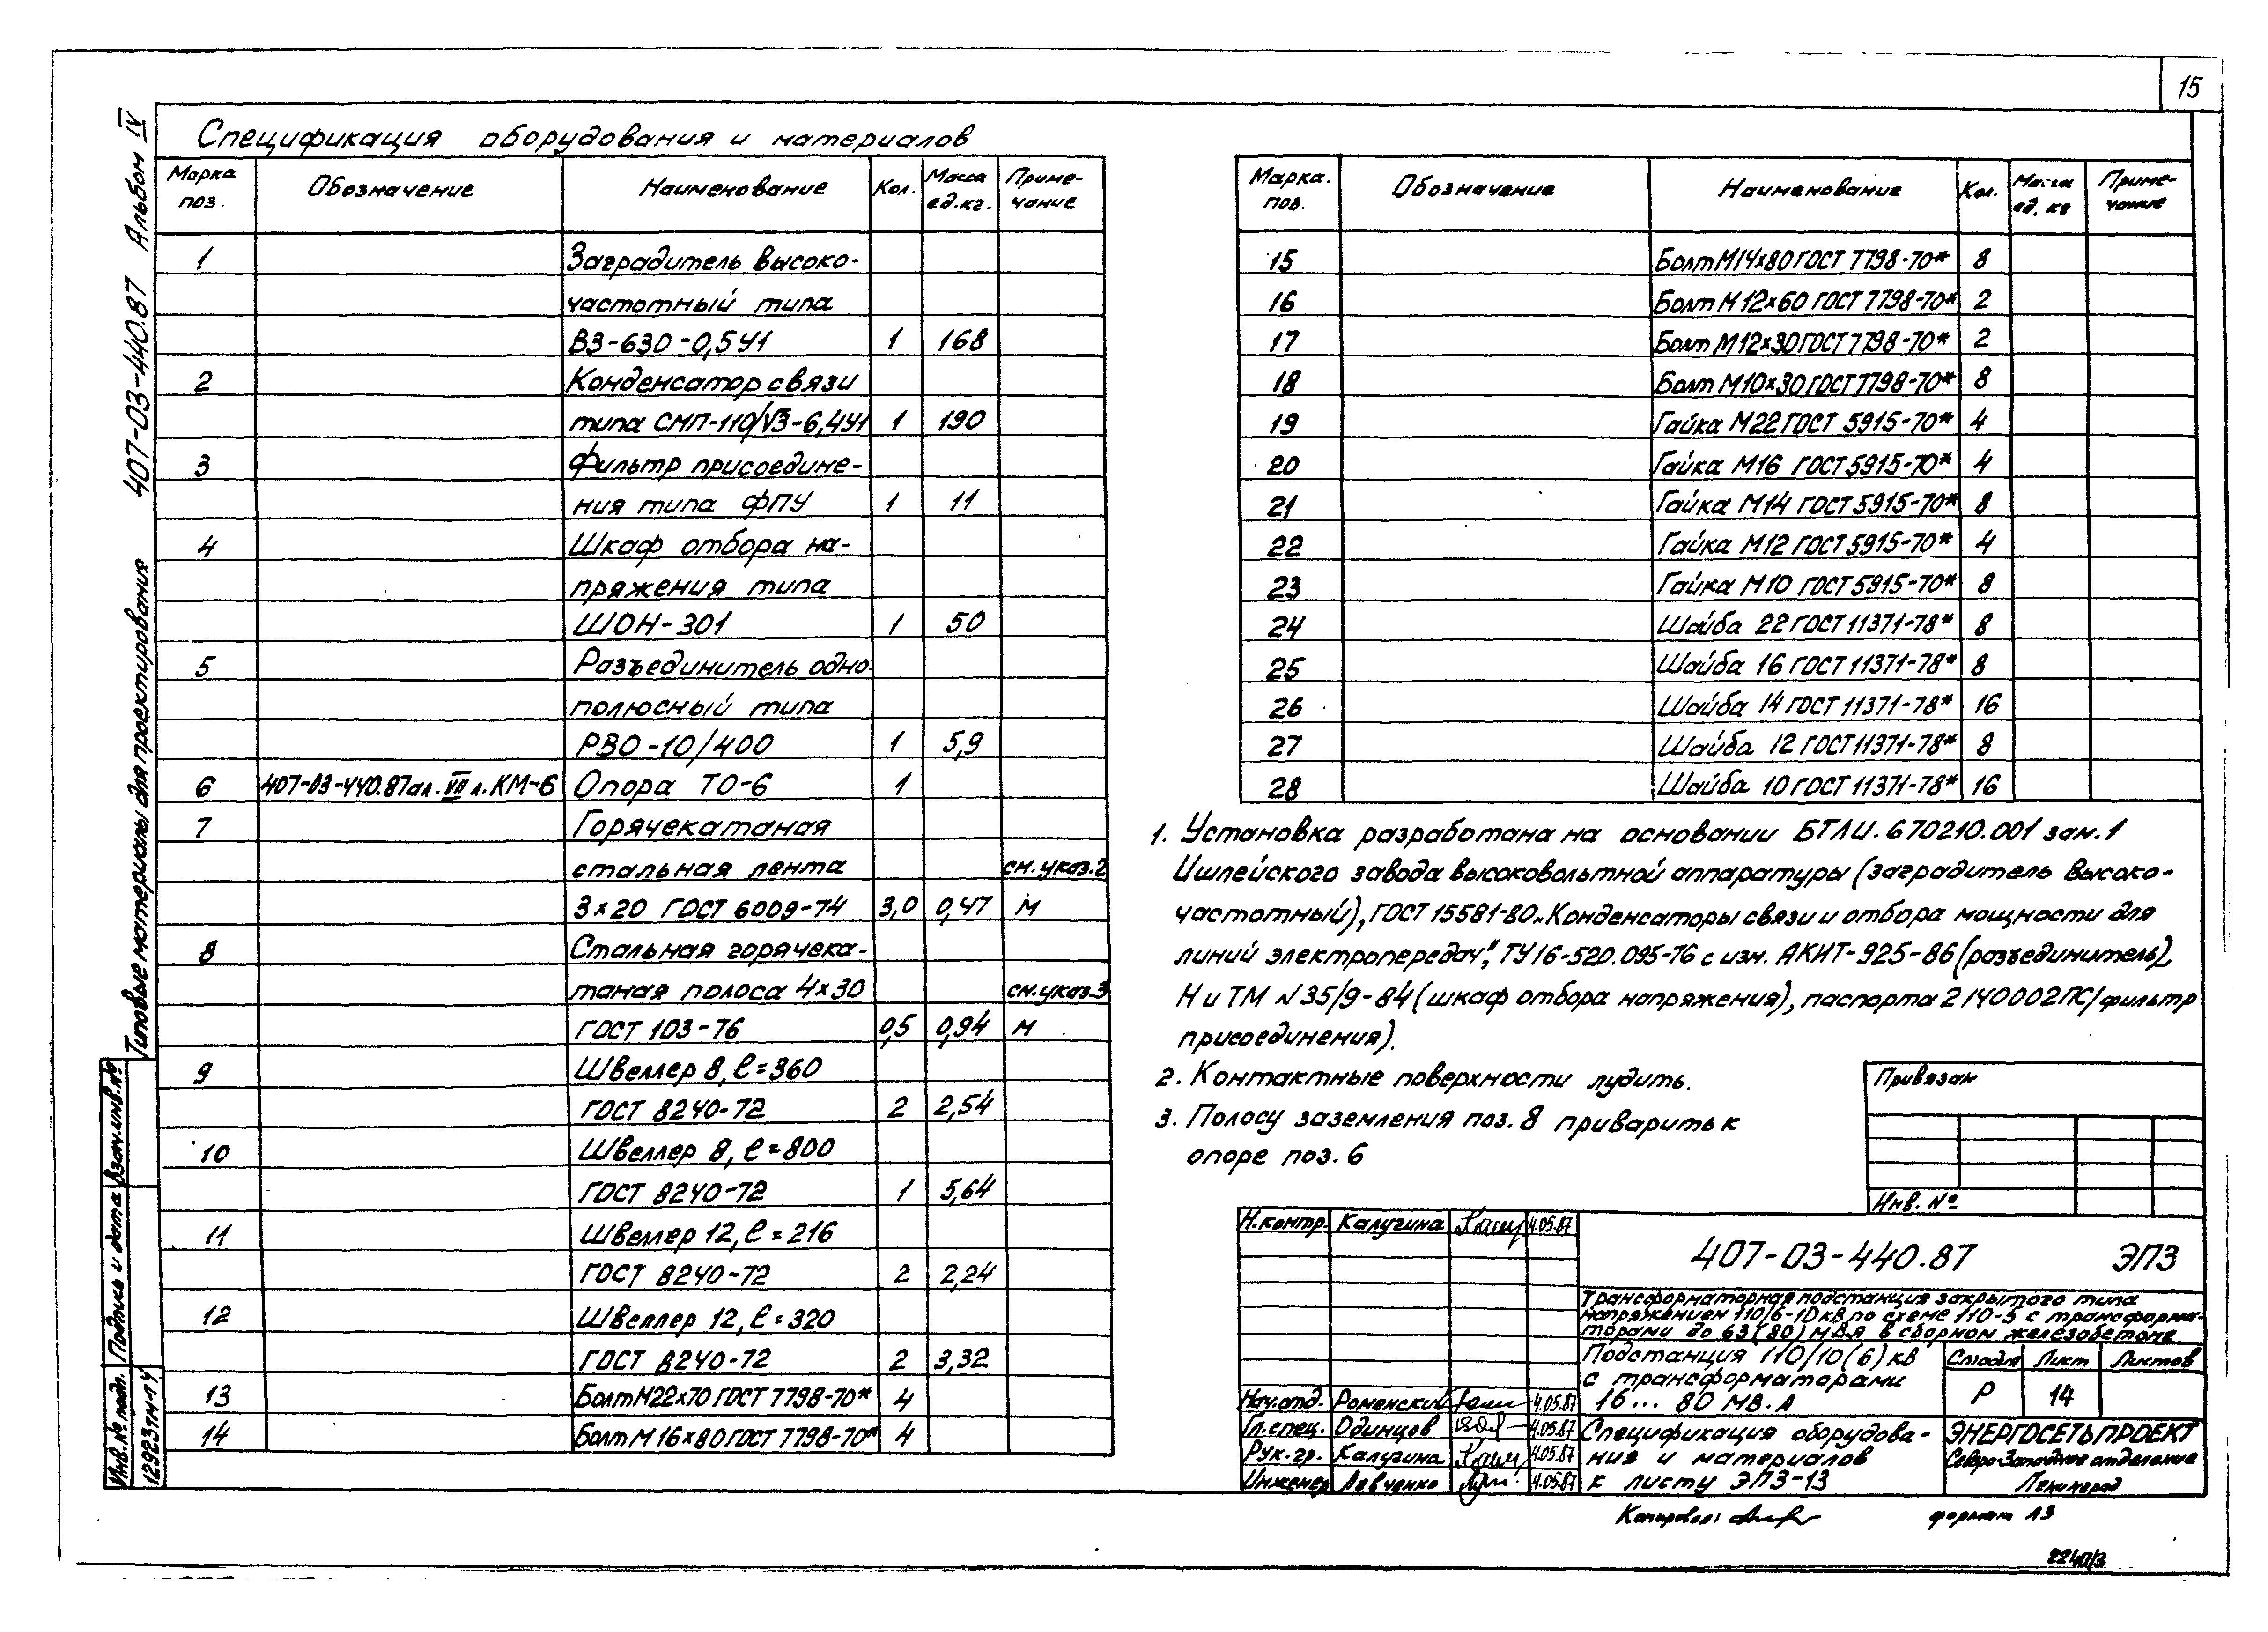 15
407-03-440.87 Альбом IV
Типовые материалы для проектирования
Спецификация оборудования и материалов
Марка поз. Обозначение Наименование Кол. Масса ед.кг. Примечание
1 Заградитель высоко-
частотный типа
ВЗ-630-0,5У1 1 168
2 Конденсатор связи
типа СМП-110/√3-6,4У1 1 190
3 Фильтр присоедине-
ния типа ФПУ 1 11
4 Шкаф отбора на-
пряжения типа
ШОН-301 1 50
5 Разъединитель одно-
полюсный типа
РВО-10/400 1 5,9
6 407-03-440.87 ал. VII л. КМ-6 Опора ТО-6 1
7 Горячекатаная
стальная лента см. указ.2
3×20 ГОСТ 6009-74 3,0 0,47 м
8 Стальная горячека-
таная полоса 4×30 см. указ.3
ГОСТ 103-76 0,5 0,94 м
9 Швеллер 8, ℓ=360
ГОСТ 8240-72 2 2,54
10 Швеллер 8, ℓ=800
ГОСТ 8240-72 1 5,64
11 Швеллер 12, ℓ=216
ГОСТ 8240-72 2 2,24
12 Швеллер 12, ℓ=320
ГОСТ 8240-72 2 3,32
13 Болт М22×70 ГОСТ 7798-70* 4
14 Болт М16×80 ГОСТ 7798-70* 4
Марка. поз. Обозначение Наименование Кол. Масса ед. кг Примечание
15 Болт М14×80 ГОСТ 7798-70* 8
16 Болт М12×60 ГОСТ 7798-70* 2
17 Болт М12×30 ГОСТ 7798-70* 2
18 Болт М10×30 ГОСТ 7798-70* 8
19 Гайка М22 ГОСТ 5915-70* 4
20 Гайка М16 ГОСТ 5915-70* 4
21 Гайка М14 ГОСТ 5915-70* 8
22 Гайка М12 ГОСТ 5915-70* 4
23 Гайка М10 ГОСТ 5915-70* 8
24 Шайба 22 ГОСТ 11371-78* 8
25 Шайба 16 ГОСТ 11371-78* 8
26 Шайба 14 ГОСТ 11371-78* 16
27 Шайба 12 ГОСТ 11371-78* 8
28 Шайба 10 ГОСТ 11371-78* 16
1. Установка разработана на основании БТЛИ.670210.001 зам.1
Ишлейского завода высоковольтной аппаратуры (заградитель высоко-
частотный), ГОСТ 15581-80 „Конденсаторы связи и отбора мощности для
линий электропередач", ТУ16-520.095-76 с изм. АКИТ-925-86 (разъединитель),
Н и ТМ №35/9-84 (шкаф отбора напряжения), паспорта 2140002ПС (фильтр
присоединения).
2. Контактные поверхности лудить.
3. Полосу заземления поз. 8 приварить к
опоре поз. 6
Привязан
Инв. №
Н.контр. Калугина 4.05.87
407-03-440.87 ЭПЗ
Трансформаторная подстанция закрытого типа
напряжением 110/6-10 кВ по схеме 110-5 с трансформа-
торами до 63(80) МВА в сборном железобетоне
Подстанция 110/10(6) кВ
с трансформаторами
16... 80 МВ.А
Стадия Лист Листов
Р 14
Нач.отд. Роменский 4.05.87
Гл.спец. Одинцов 4.05.87
Рук.гр. Калугина 4.05.87
Инженер Левченко 4.05.87
Спецификация оборудова-
ния и материалов
к листу ЭПЗ-13
ЭНЕРГОСЕТЬПРОЕКТ
Северо-Западное отделение
Ленинград
Копировал:
формат А3
2240/3
Инв.№ подл. Подпись и дата Взам.инв.№
12923тм-14